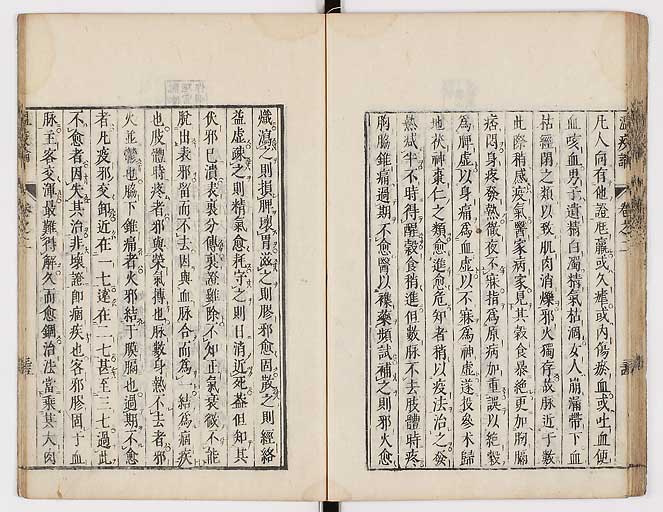 凡人向有他證尫羸或久瘧或内傷瘀血或吐血便
血咳血男子遺精白濁精氣枯涸女人崩漏帶下血
枯經閉之類以致肌肉消爍邪火獨存故脉近于數
此際稍感疫氣醫家病家見其穀食暴絶更加胸膈
痞悶身疼發熱徹夜不寐指為原病加重誤以絶穀
為脾虚以身痛為血虚以不寐為神虚遂投參术歸
地茯神棗仁之類愈進愈危知者稍以疫法治之發
熱减半不時得醒穀食稍進但數脉不去肢體時疼
胸脇錐痛過期不愈醫以雜藥頻試補之則邪火愈
熾瀉之則損脾壞胃滋之則膠邪愈固散之則經絡
益虚疎之則精氣愈耗守之則日消近死葢但知其
伏邪已潰表裏分傳裏證雖除不知正氣衰微不能
脱出表邪留而不去因與血脉合而為一結為痼疾
也肢體時疼者邪與榮氣搏也脉數身熱不去者邪
火並鬱也脇下錐痛者火邪結于膜膈也過期不愈
者凡疫邪交卸近在一七遠在二七甚至三七過此
不愈者因失其治非壞證即痼疾也客邪膠固于血
脉主客交渾最難得解久而愈錮治法當乘其大肉